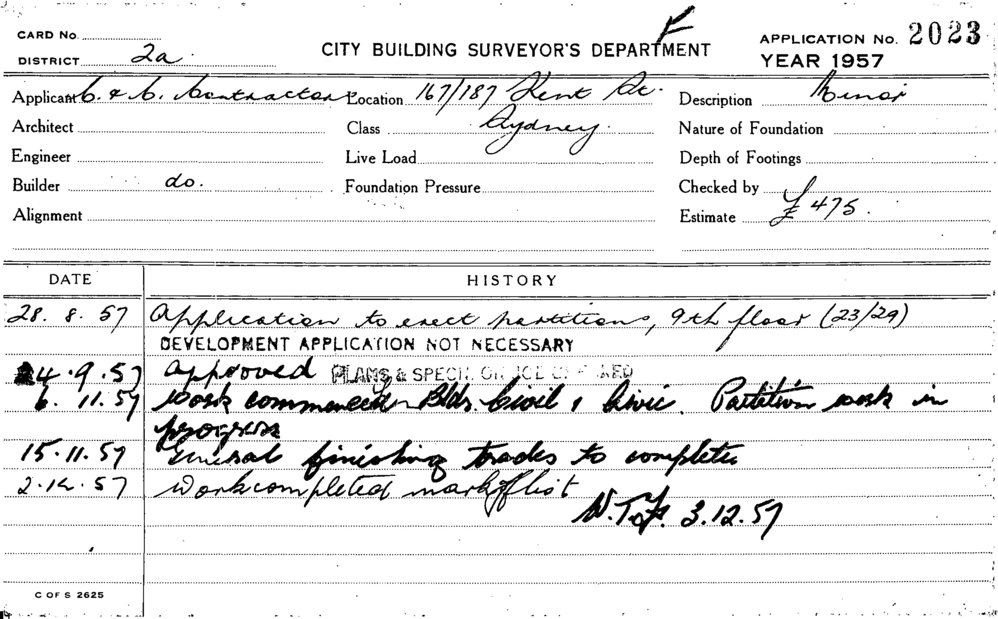 CARD No.
CITY BUILDING SURVEYOR'S DEPARTMENT
APPLICATION No. 2023
DISTRICT 2a
YEAR 1957
Applicant C. & C. Contractors Location 167/187 Kent St. Description Minor
Architect Class Sydney. Nature of Foundation
Engineer Live Load Depth of Footings
Builder do. Foundation Pressure Checked by
Alignment Estimate £475.
DATE HISTORY
28. 8. 57 Application to erect partitions, 9th floor (23/29)
DEVELOPMENT APPLICATION NOT NECESSARY
4.9.57 Approved PLANS & SPECN.
6. 11. 57 Work commenced Bldr. Civil & Civic. Partition work in
progress
15.11.57 General finishing trades to complete
2.12.57 Work completed mark off list
3.12.57
C OF S 2625